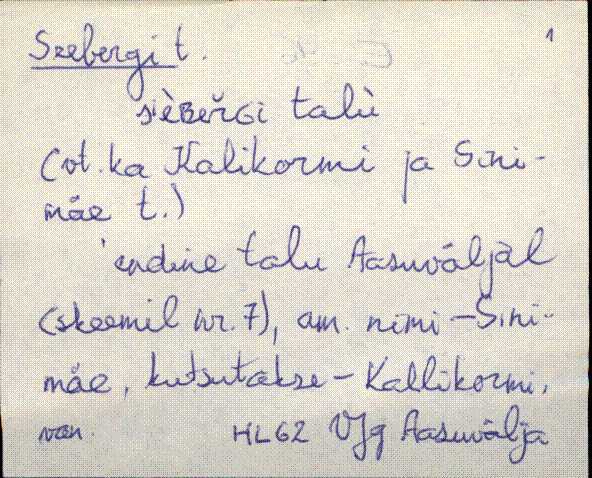 Seebergi t. 1
sièʙeřɢi talù
(vt. ka Kalikormi ja Sini-
mäe t.)
'endine talu Aasuväljal
(skeemil nr. 7), am. nimi – Sini-
mäe, kutsutakse – Kallikormi.
van. HL62 VJg Aasuvälja